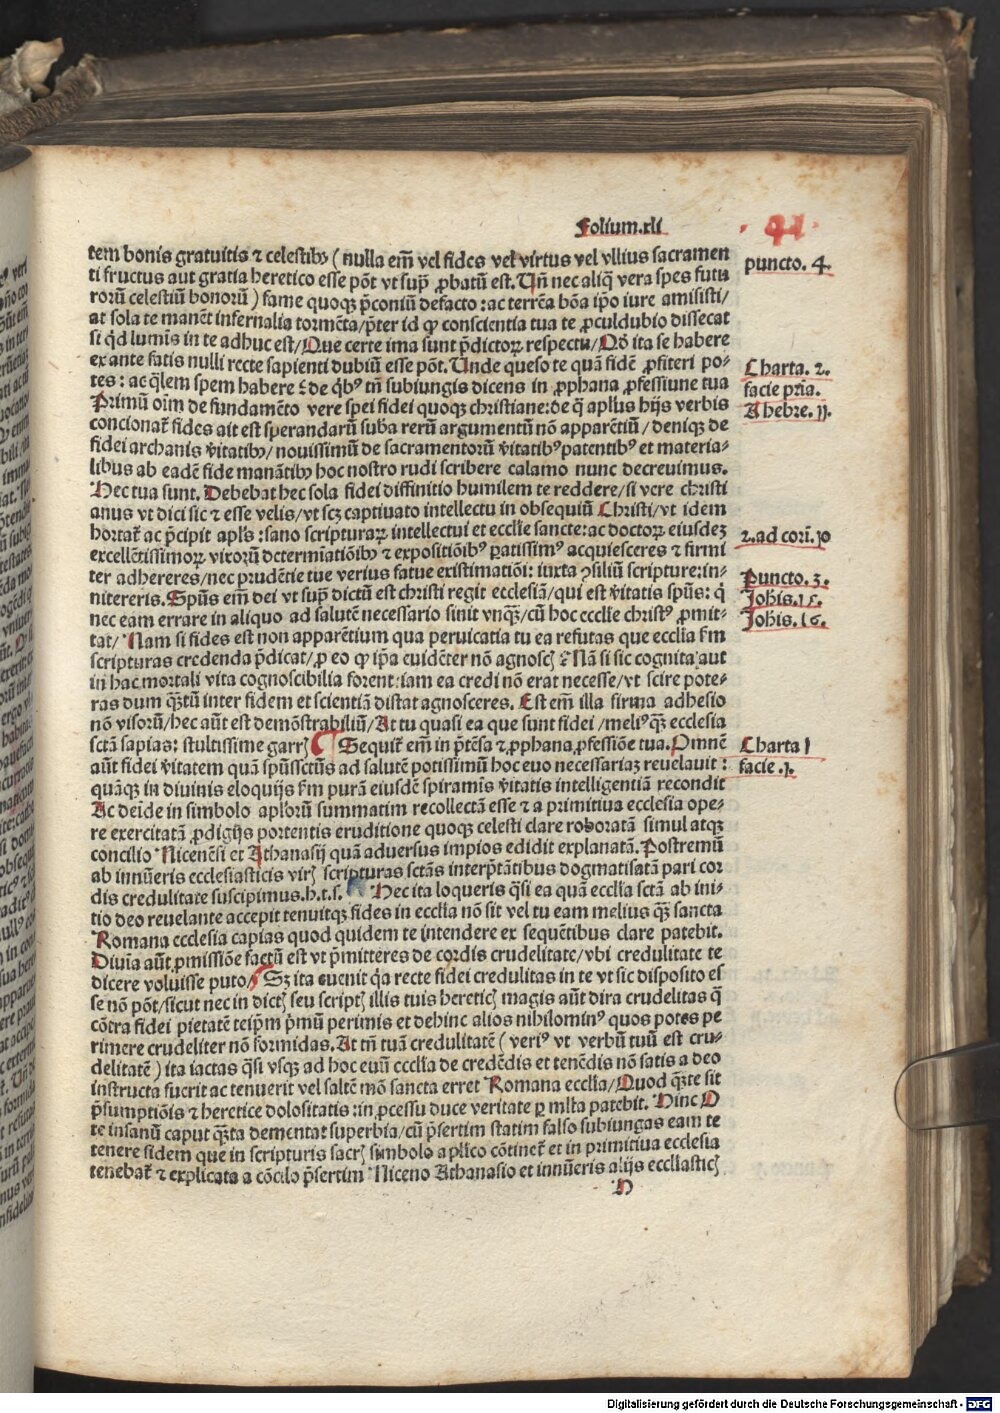 Folium.xli
41
tem bonis gratuitis ⁊ celestibꝰ ( nulla em̄ vel fides vel virtus vel vllius sacramen
ti fructus aut gratia heretico esse pōt vt sup̄ ꝓbatū est. Uñ nec aliq̄ vera spes futu
rorū celestiū bonorū ) fame quoqꝫ p̄coniū defacto : ac terrēa bōa ip̄o iure amisisti/
at sola te manēt infernalia tormēta/p̄ter id ꝙ conscientia tua te ꝓculdubio dissecat
si qd lumis in te adhuc est/ Que certe ima sunt p̄dictoꝝ respectu/ Qd ita se habere
ex ante fatis nulli recte sapienti dubiū esse pōt. Unde queso te quā fidē ꝓfiteri po-
tes : ac q̄lem spem habere ⁊ de q̄bꝰ tn̄ subiungis dicens in ꝓphana ꝓfessiune tua
Primū oim de fundamēto vere spei fidei quoqꝫ christiane: de q̄ apl̄us hijs verbis
concionat̄ fides ait est sperandarū suba rerū argumentū nō apparētiū / denique de
fidei archanis v̄itatibꝰ / nouissimū de sacramentorū v̄itatibꝰ patentibꝰ et materia-
libus ab eadē fide manātibꝰ hoc nostro rudi scribere calamo nunc decreuimus.
Hec tua sunt. Debebat hec sola fidei diffinitio humilem te reddere/si vere christi
anus vt dici sic ⁊ esse velis/vt scꝫ captivato intellectu in obsequiū Christi/vt idem
hortat̄ ac p̄cipit apl̄s : sano scripturaꝝ intellectui et ecclie sancte: ac doctoꝝ eiusdeꝫ
excellētissimoꝝ viroꝝū determiatiōibꝰ ⁊ expositiōibꝰ ꝑatissimꝰ acquiesceres ⁊ firmi
ter adhereres/nec prudētie tue verius fatue existimatiōi: iuxta ꝯsiliū scripture: in-
nitereris. Spūs em̄ dei vt sup̄ dictū est christi regit ecclesiā/qui est v̄itatis spūs: q̄
nec eam errare in aliquo ad salutē necessario sinit vnqꝫ/cū hoc ecclie christꝰ ꝓmit-
tat/ Nam si fides est non apparētium qua peruicatia tu ea refutas que ecclia fm̄
scripturas credenda p̄dicat/ꝑ eo ꝙ ip̄a euidēter nō agnoscꝭ ⁊ Nā si sic cognita aut
in hac mortali vita cognoscibilia forent: iam ea credi nō erat necesse/vt scire pote-
ras dum q̄tū inter fidem et scientiā distat agnosceres. Est em̄ illa firma adhesio
nō visorū/hec aūt est demōstrabiliū/At tu quasi ea que sunt fidei /meliꝰ qꝫ ecclesia
sctā sapias: stultissime garrꝭ ¶ Sequit̄ em̄ in p̄tēsa ⁊ ꝓphana ꝓfessiōe tua. Omnē
aūt fidei v̄itatem quā spūssctūs ad salutē potissimū hoc euo necessariaꝫ reuelauit :
quāqꝫ in diuinis eloquijs fm̄ purā eiusdē spiramis v̄itatis intelligentiā recondit
Ac deīde in simbolo apl̄orū summatim recollectā esse ⁊ a primitiua ecclesia ope-
re exercitatā ꝓdigijs portentis eruditione quoqꝫ celesti clare roboratā simul atqꝫ
concilio Nicenēsi et Athanasij quā adversus impios edidit explanatā. Postremū
ab innūeris ecclesiasticis virꝭ scripturas sctās interp̄tātibus dogmatisatā pari cor
dis credulitate suscipimus.h.t.s. Hec ita loqueris q̄si ea quā ecclia sctā ab ini-
tio deo reuelante accepit tenuitqꝫ fides in ecclia nō sit vel tu eam melius qꝫ sancta
Romana ecclesia capias quod quidem te intendere ex sequētibus clare patebit.
Diuīa aūt ꝓmissiōe factū est vt p̄mitteres de cordis crudelitate/vbi credulitate te
dicere voluisse puto/ Sꝫ ita euenit q̄a recte fidei credulitas in te vt sic disposito es
se nō pōt/sicut nec in dictꝭ seu scriptꝭ illis tuis hereticꝭ magis aūt dira crudelitas q̄
cōtra fidei pietatē teip̄m p̄mū perimis et dehinc alios nihilominꝰ quos potes pe
rimere crudeliter nō formidas. At tn̄ tuā crudelitatē ( veriꝰ vt verbū tuū est cru-
delitatē ) ita iactas q̄si vsqꝫ ad hoc euū ecclia de credēdis et tenēdis nō satis a deo
instructa fuerit ac tenuerit vel saltē mō sancta erret Romana ecclia/ Quod q̄te sit
p̄sumptiōis ⁊ heretice dolositatis : in ꝓcessu duce veritate ꝑ ml̄ta patebit. Hinc O
te insanū caput q̄ta dementat superbia/cū p̄sertim statim falso subiungas eam te
tenere fidem que in scripturis sacrꝭ simbolo aplico cōtinet̄ et in primitiua ecclesia
tenebat̄ ⁊ explicata a cōcilo p̄sertim Niceno Athanasio et innūeris alijs ecclasticꝭ
H
puncto. 4.
Charta. 2.
facie pr̄ia.
A hebre. 11.
2. ad corī. 10
Puncto. 3.
Johis. 15.
Johis. 16.
Charta 1
facie .1.
Digitalisierung gefördert durch die Deutsche Forschungsgemeinschaft - DFG